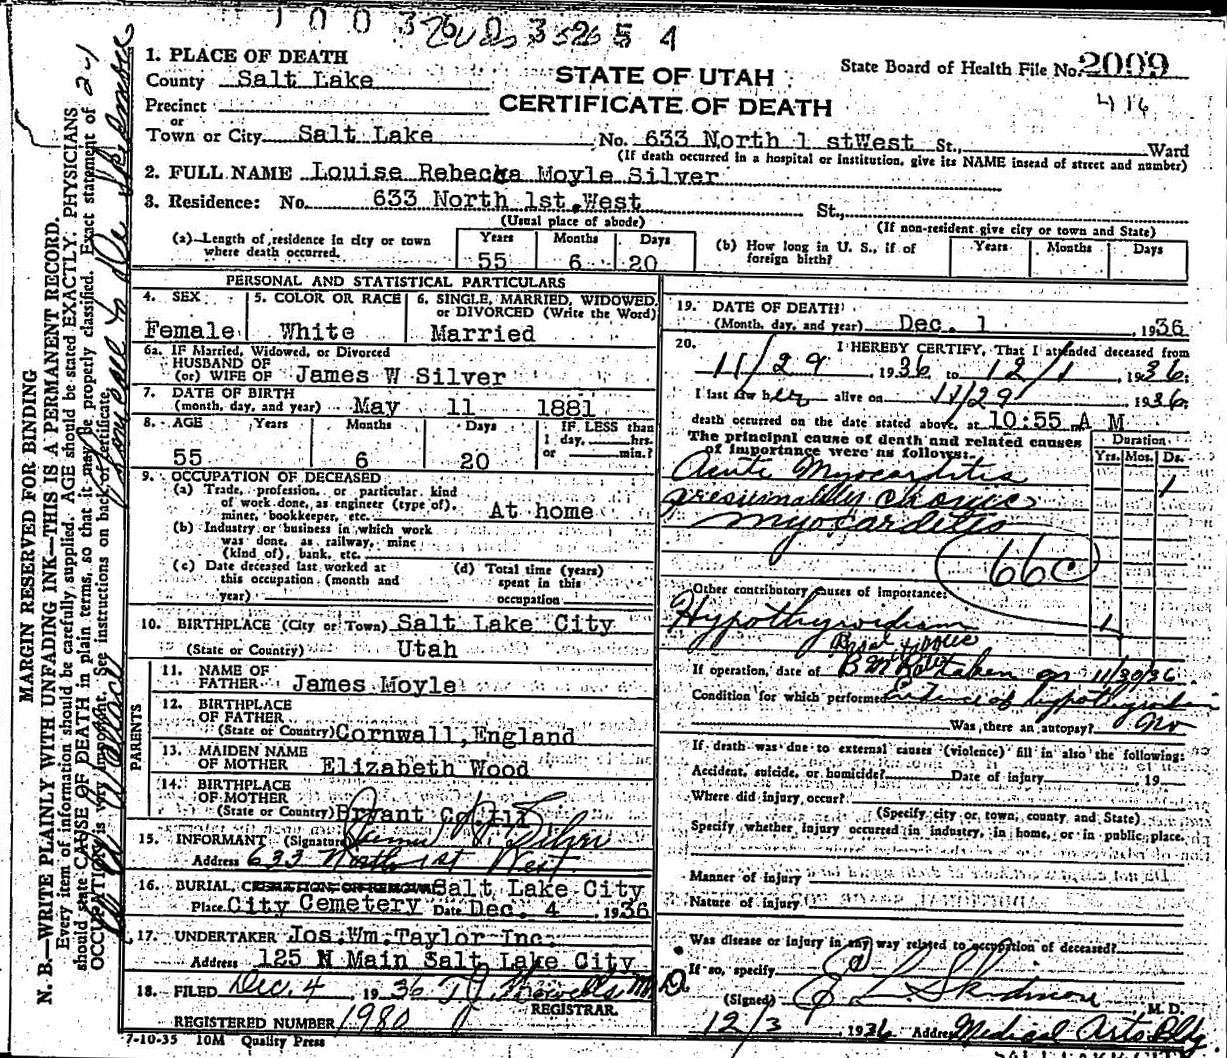 1 0 0 3
3 5 4
STATE OF UTAH
CERTIFICATE OF DEATH
State Board of Health File No. 2009
416
1. PLACE OF DEATH
County Salt Lake
Precinct
or
Town or City Salt Lake No. 633 North 1 stWest St., Ward
(If death occurred in a hospital or institution, give its NAME instead of street and number)
2. FULL NAME Louise Rebecka Moyle Silver
3. Residence: No. 633 North 1st,West St.,
(Usual place of abode)
(If non-resident give city or town and State)
(a) Length of residence in city or town where death occurred. Years 55 Months 6 Days 20
(b) How long in U. S., if of foreign birth? Years Months Days
PERSONAL AND STATISTICAL PARTICULARS
4. SEX Female
5. COLOR OR RACE White
6. SINGLE, MARRIED, WIDOWED, or DIVORCED (Write the Word) Married
6a. IF Married, Widowed, or Divorced
HUSBAND OF
(or) WIFE OF James W Silver
7. DATE OF BIRTH
(month, day, and year) May 11 1881
8. AGE Years Months Days IF LESS than
1 day, hrs.
or min.?
55 6 20
9. OCCUPATION OF DECEASED
(a) Trade, profession, or particular kind
of work done, as engineer (type of),
miner, bookkeeper, etc. At home
(b) Industry or business in which work
was done, as railway, mine
(kind of), bank, etc.
(c) Date deceased last worked at
this occupation (month and
year)
(d) Total time (years)
spent in this
occupation
10. BIRTHPLACE (City or Town) Salt Lake City
(State or Country) Utah
PARENTS
11. NAME OF
FATHER James Moyle
12. BIRTHPLACE
OF FATHER
(State or Country) Cornwall,England
13. MAIDEN NAME
OF MOTHER Elizabeth Wood
14. BIRTHPLACE
OF MOTHER
(State or Country) Bryant Co Ill
15. INFORMANT (Signature) James W. Silver
Address 633 North 1st West
16. BURIAL, CREMATION, OR REMOVAL Salt Lake City
Place City Cemetery Date Dec. 4 , 1936
17. UNDERTAKER Jos.Wm.Taylor Inc.
Address 125 N Main Salt Lake City
18. FILED Dec. 4 1936 T J Howells MD
REGISTRAR.
REGISTERED NUMBER 1980
7-10-35 10M Quality Press
19. DATE OF DEATH
(Month, day, and year) Dec. 1 , 1936
20. I HEREBY CERTIFY, That I attended deceased from
11/29 , 1936 to 12/1 , 1936.
I last saw her alive on 11/29 1936.
death occurred on the date stated above, at 10:55 A M
The principal cause of death and related causes
of importance were as follows:
Duration
Yrs. Mos. Ds.
Acute Myocarditis 1
presumably chronic
myocarditis
66c
Other contributory causes of importance:
Hypothyroidism 1
If operation, date of B.M. Rate taken on 11/30/36
Condition for which performed Evidence of hypothyroidism
Was there an autopsy? No
If death was due to external causes (violence) fill in also the following:
Accident, suicide, or homicide? Date of injury 19
Where did injury occur?
(Specify city or town, county and State)
Specify whether injury occurred in industry, in home, or in public place.
Manner of injury
Nature of injury
Was disease or injury in any way related to occupation of deceased?
If so, specify
(Signed) E L. Skidmore M. D.
12/3 1936 Address Medical Arts Bldg
MARGIN RESERVED FOR BINDING
N. B.—WRITE PLAINLY WITH UNFADING INK—THIS IS A PERMANENT RECORD.
Every item of information should be carefully supplied. AGE should be stated EXACTLY. PHYSICIANS
should state CAUSE OF DEATH in plain terms, so that it may be properly classified. Exact statement of
OCCUPATION is very important. See instructions on back of certificate.